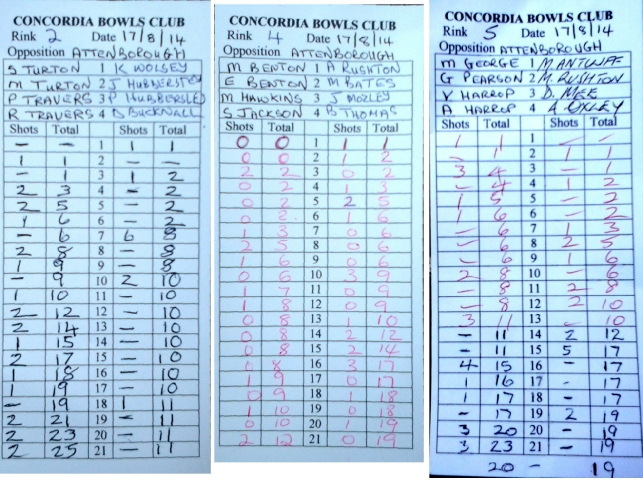 CONCORDIA BOWLS CLUB
Rink 2 Date 17/8/14
Opposition ATTENBOROUGH
S TURTON 1 K WOLSEY
M TURTON 2 J HUBBERSTEY
P TRAVERS 3 P HUBBERSLEY
R TRAVERS 4 D BUCKNALL
Shots Total Shots Total
- - 1 1 1
1 1 2 - -
- 1 3 1 2
2 3 4 - 2
2 5 5 - 2
1 6 6 - 2
- 6 7 6 8
2 8 8 - 8
1 9 9 - 8
- 9 10 2 10
1 10 11 - 10
2 12 12 - 10
2 14 13 - 10
1 15 14 - 10
2 17 15 - 10
1 18 16 - 10
1 19 17 - 10
- 19 18 1 11
2 21 19 - 11
2 23 20 - 11
2 25 21 - 11
CONCORDIA BOWLS CLUB
Rink 4 Date 17/8/14
Opposition ATTENBOROUGH
M BENTON 1 A RUSHTON
E BENTON 2 M BATES
M HAWKINS 3 J MOZLEY
S JACKSON 4 B THOMAS
Shots Total Shots Total
0 0 1 1 1
0 0 2 1 2
2 2 3 0 2
0 2 4 1 3
0 2 5 2 5
0 2 6 1 6
1 3 7 0 6
2 5 8 0 6
1 6 9 0 6
0 6 10 3 9
1 7 11 0 9
1 8 12 0 9
0 8 13 1 10
0 8 14 2 12
0 8 15 2 14
0 8 16 3 17
1 9 17 0 17
0 9 18 1 18
1 10 19 0 18
0 10 20 1 19
2 12 21 0 19
CONCORDIA BOWLS CLUB
Rink 5 Date 17/8/14
Opposition ATTENBOROUGH
M GEORGE 1 M ANTCLIFF
G PEARSON 2 M. RUSHTON
V HARROP 3 D. MEE
A HARROP 4 A OXLEY
Shots Total Shots Total
1 1 1
2 1 1
3 4 3 - 1
- 4 4 1 2
1 5 5 - 2
1 6 6 - 2
- 6 7 1 3
- 6 8 2 5
- 6 9 1 6
2 8 10 - 6
- 8 11 2 8
- 8 12 2 10
3 11 13 - 10
- 11 14 2 12
- 11 15 5 17
4 15 16 - 17
1 16 17 - 17
1 17 18 - 17
- 17 19 2 19
3 20 20 - 19
3 23 21 - 19
20 - 19